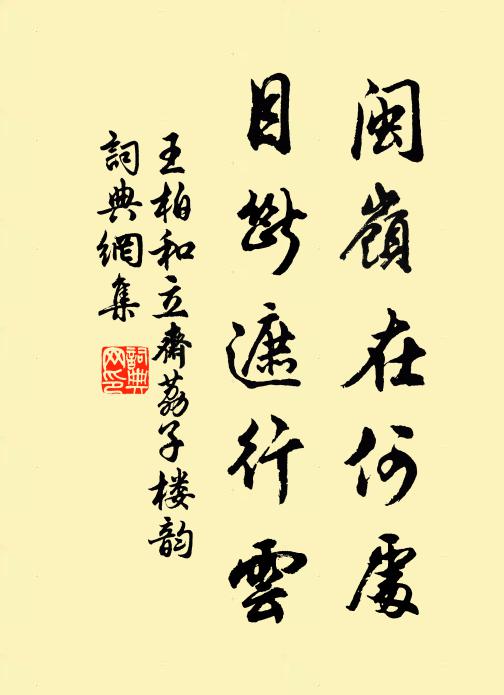 閩嶺在何處
目斷遮行雲
王柏和立齋荔子楼韵
詞典網集
詞典網印